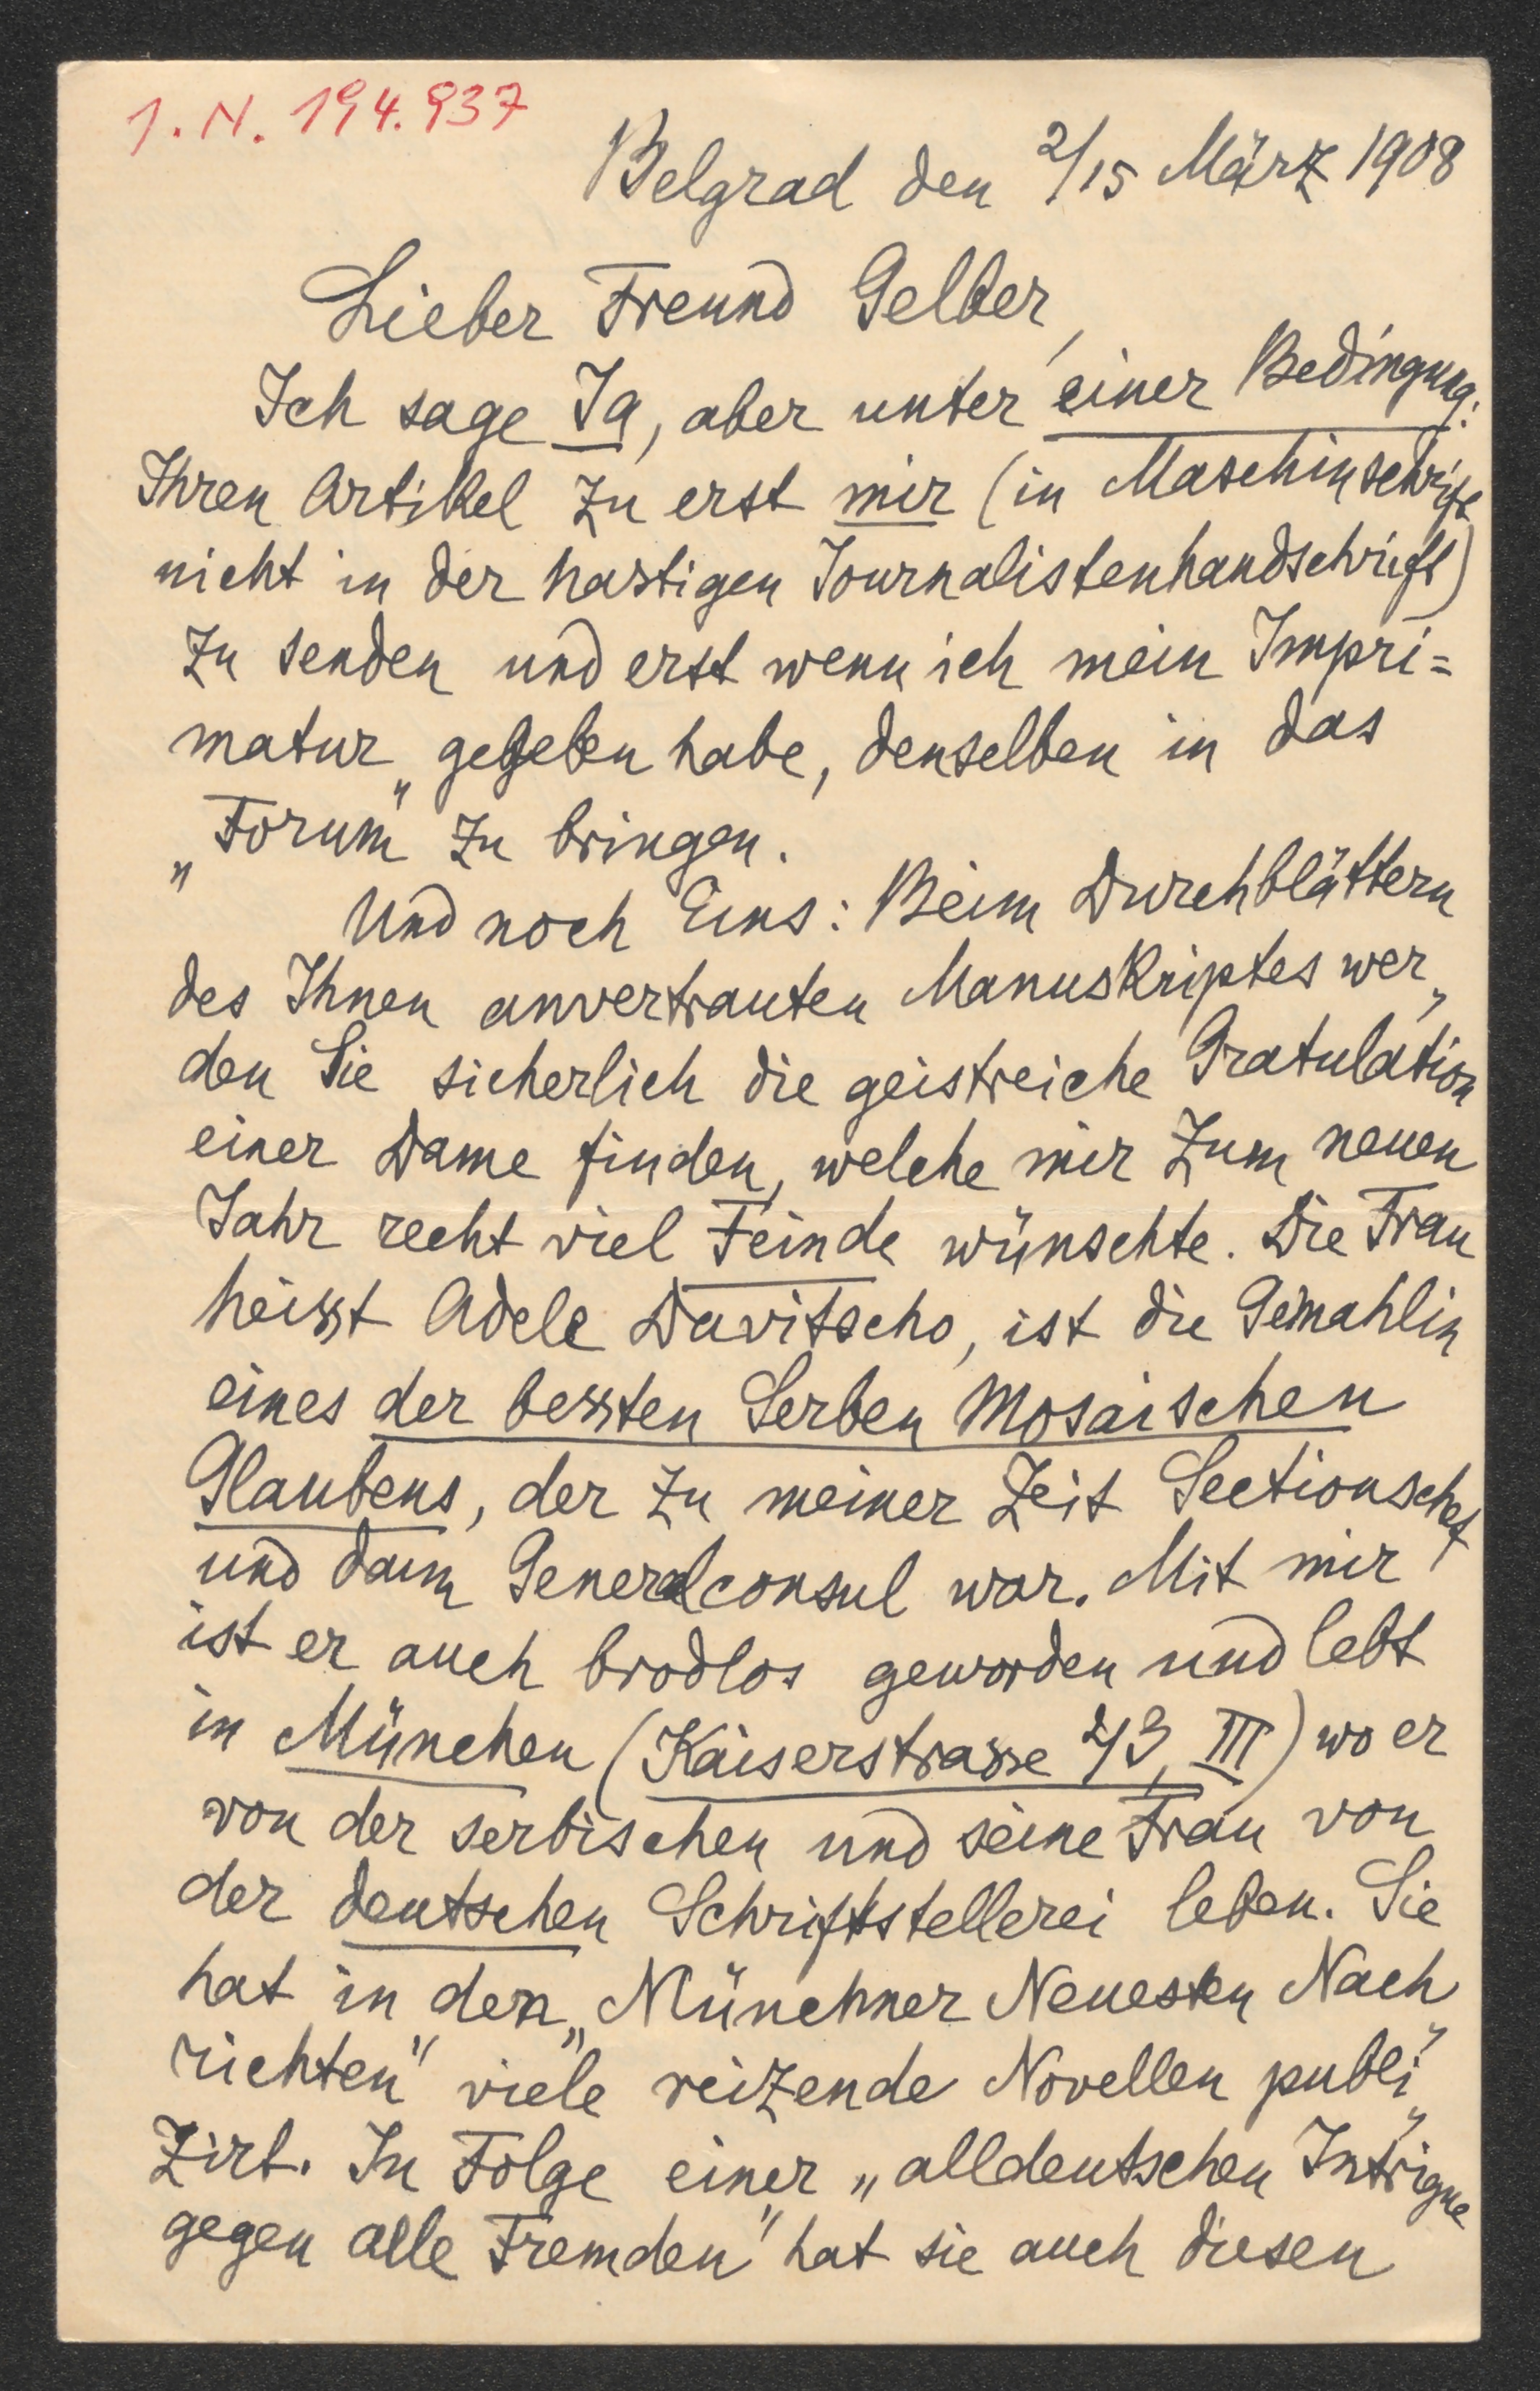 I. N. 194.937
Belgrad den 2/15 März 1908
Lieber Freund Gelber,
Ich sage Ja, aber unter einer Bedingung:
Ihren Artikel zu erst mir (in Maschinschrift
nicht in der hastigen Journalistenhandschrift)
zu senden und erst wenn ich mein Impri=
matur„ gegeben habe, denselben in das
„Forum" zu bringen.
Und noch Eins: Beim Durchblättern
des Ihnen anvertrauten Manuskriptes wer„
den Sie sicherlich die geistreiche Gratulation
einer Dame finden, welche mir zum neuen
Jahr recht viel Feinde wünschte. Die Frau
heisst Adele Davitscho, ist die Gemahlin
eines der bessten Serben Mosaischen
Glaubens, der zu meiner Zeit Sectionschef
und dann Generalconsul war. Mit mir
ist er auch brodlos geworden und lebt
in München (Kaiserstrasse III) wo er
von der serbischen und seine Frau von
der deutschen Schriftstellerei leben. Sie
hat in den „Münchner Neuesten Nach„
richten" viele reizende Novellen publi„
zirt. In Folge einer „alldeutschen Intrigue
gegen alle Fremden" hat sie auch diesen